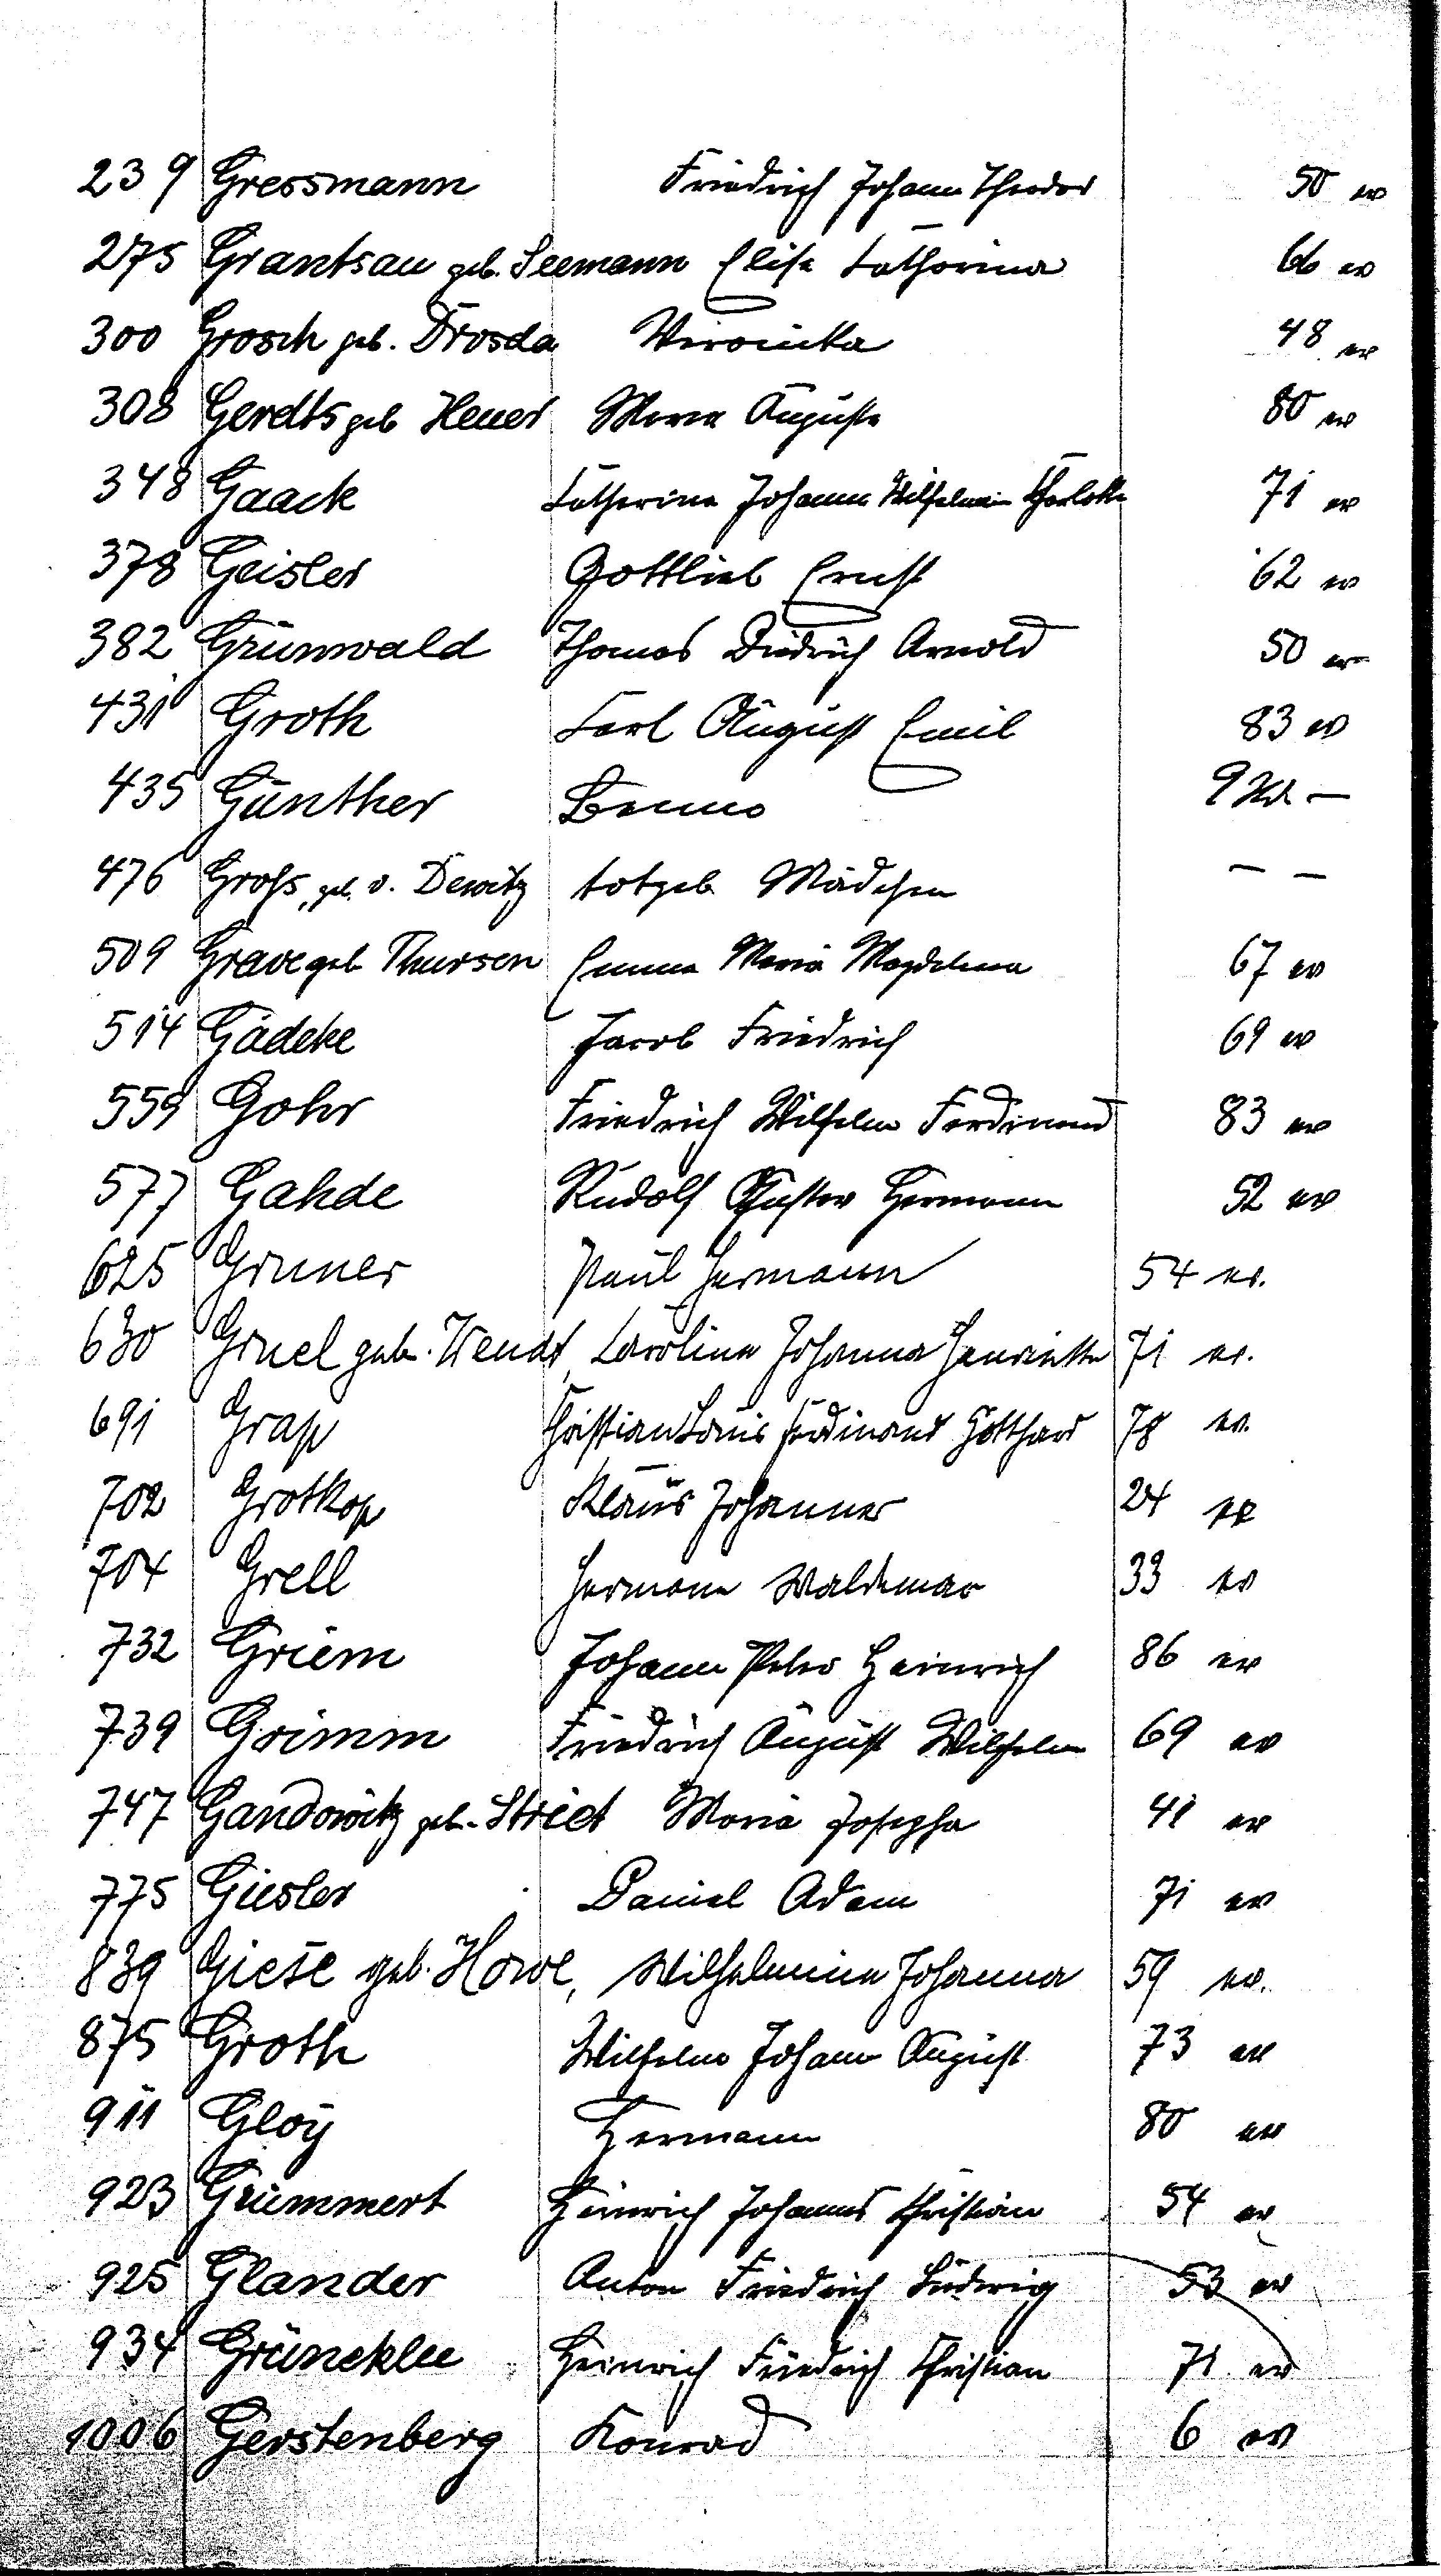 239 Gressmann Friedrich Johann Theodor 50 ev
275 Grantsau geb. Seemann Elise Catharina 66 ev
300 Grosch geb. Drosda Veronika 48 ev
308 Gerdts geb Heuer Maria Auguste 80 ev
348 Gaack Catharina Johanna Wilhelmin Charlotte 71 ev
378 Geisler Gottlieb Ernst 62 ev
382 Grünwald Thomas Diedrich Arnold 50 ev
431 Groth Carl August Emil 83 ev
435 Günther Benno 9 Std. —
476 Groß, geb. v. Dewitz totgeb. Mädchen — —
509 Grave geb Thursen Emma Maria Magdalena 67 ev
514 Gädeke Jacob Friedrich 69 ev
559 Gohr Friedrich Wilhelm Ferdinand 83 ev
577 Gahde Rudolf Gustav Hermann 52 ev
625 Gruner Paul Hermann 54 ev.
630 Gruel geb. Wendt, Carolina Johanna Henriette 71 ev.
691 Grap Christian Louis Ferdinand Gotthard 78 ev.
702 Grotkop Klaus Johannes 24 ev
704 Grell Hermann Waldemar 33 ev
732 Griem Johann Peter Heinrich 86 ev
739 Grimm Friedrich August Wilhelm 69 ev
747 Gandowitz geb. Maria Josepha 41 ev
775 Giesler Daniel Adam 71 ev
839 Giese geb. Howe, Wilhelmine Johanna 59 ev.
875 Groth Wilhelm Johann August 73 ev
911 Gloy Hermann 80 ev
923 Grümmert Heinrich Johannes Christian 54 ev
925 Glander Anton Friedrich Ludwig 53 ev
934 Grüneklee Heinrich Friedrich Christian 71 ev
1006 Gerstenberg Konrad 6 ev